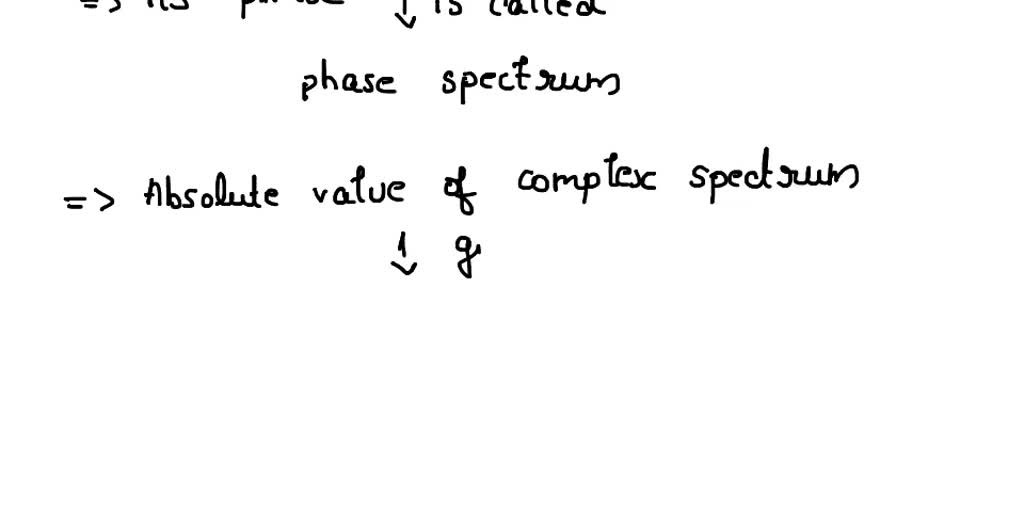 => Its phase ↓ is called
phase spectrum
=> Absolute value of complex spectrum
↓ g